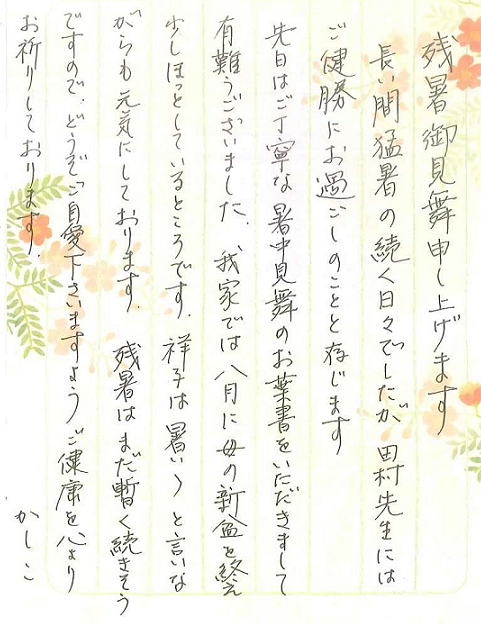 残暑御見舞申し上げます
長い間猛暑の続く日々でしたが、田村先生には
ご健勝にお過ごしのことと存じます
先日はご丁寧な暑中見舞のお葉書をいただきまして
有難うございました。我家では八月に母の新盆を終え
少しほっとしているところです。祥子は暑い〱と言いな
がらも元気にしております。残暑はまだ暫く続きそう
ですので、どうぞご自愛下さいますようご健康を心より
お祈りしております。
かしこ